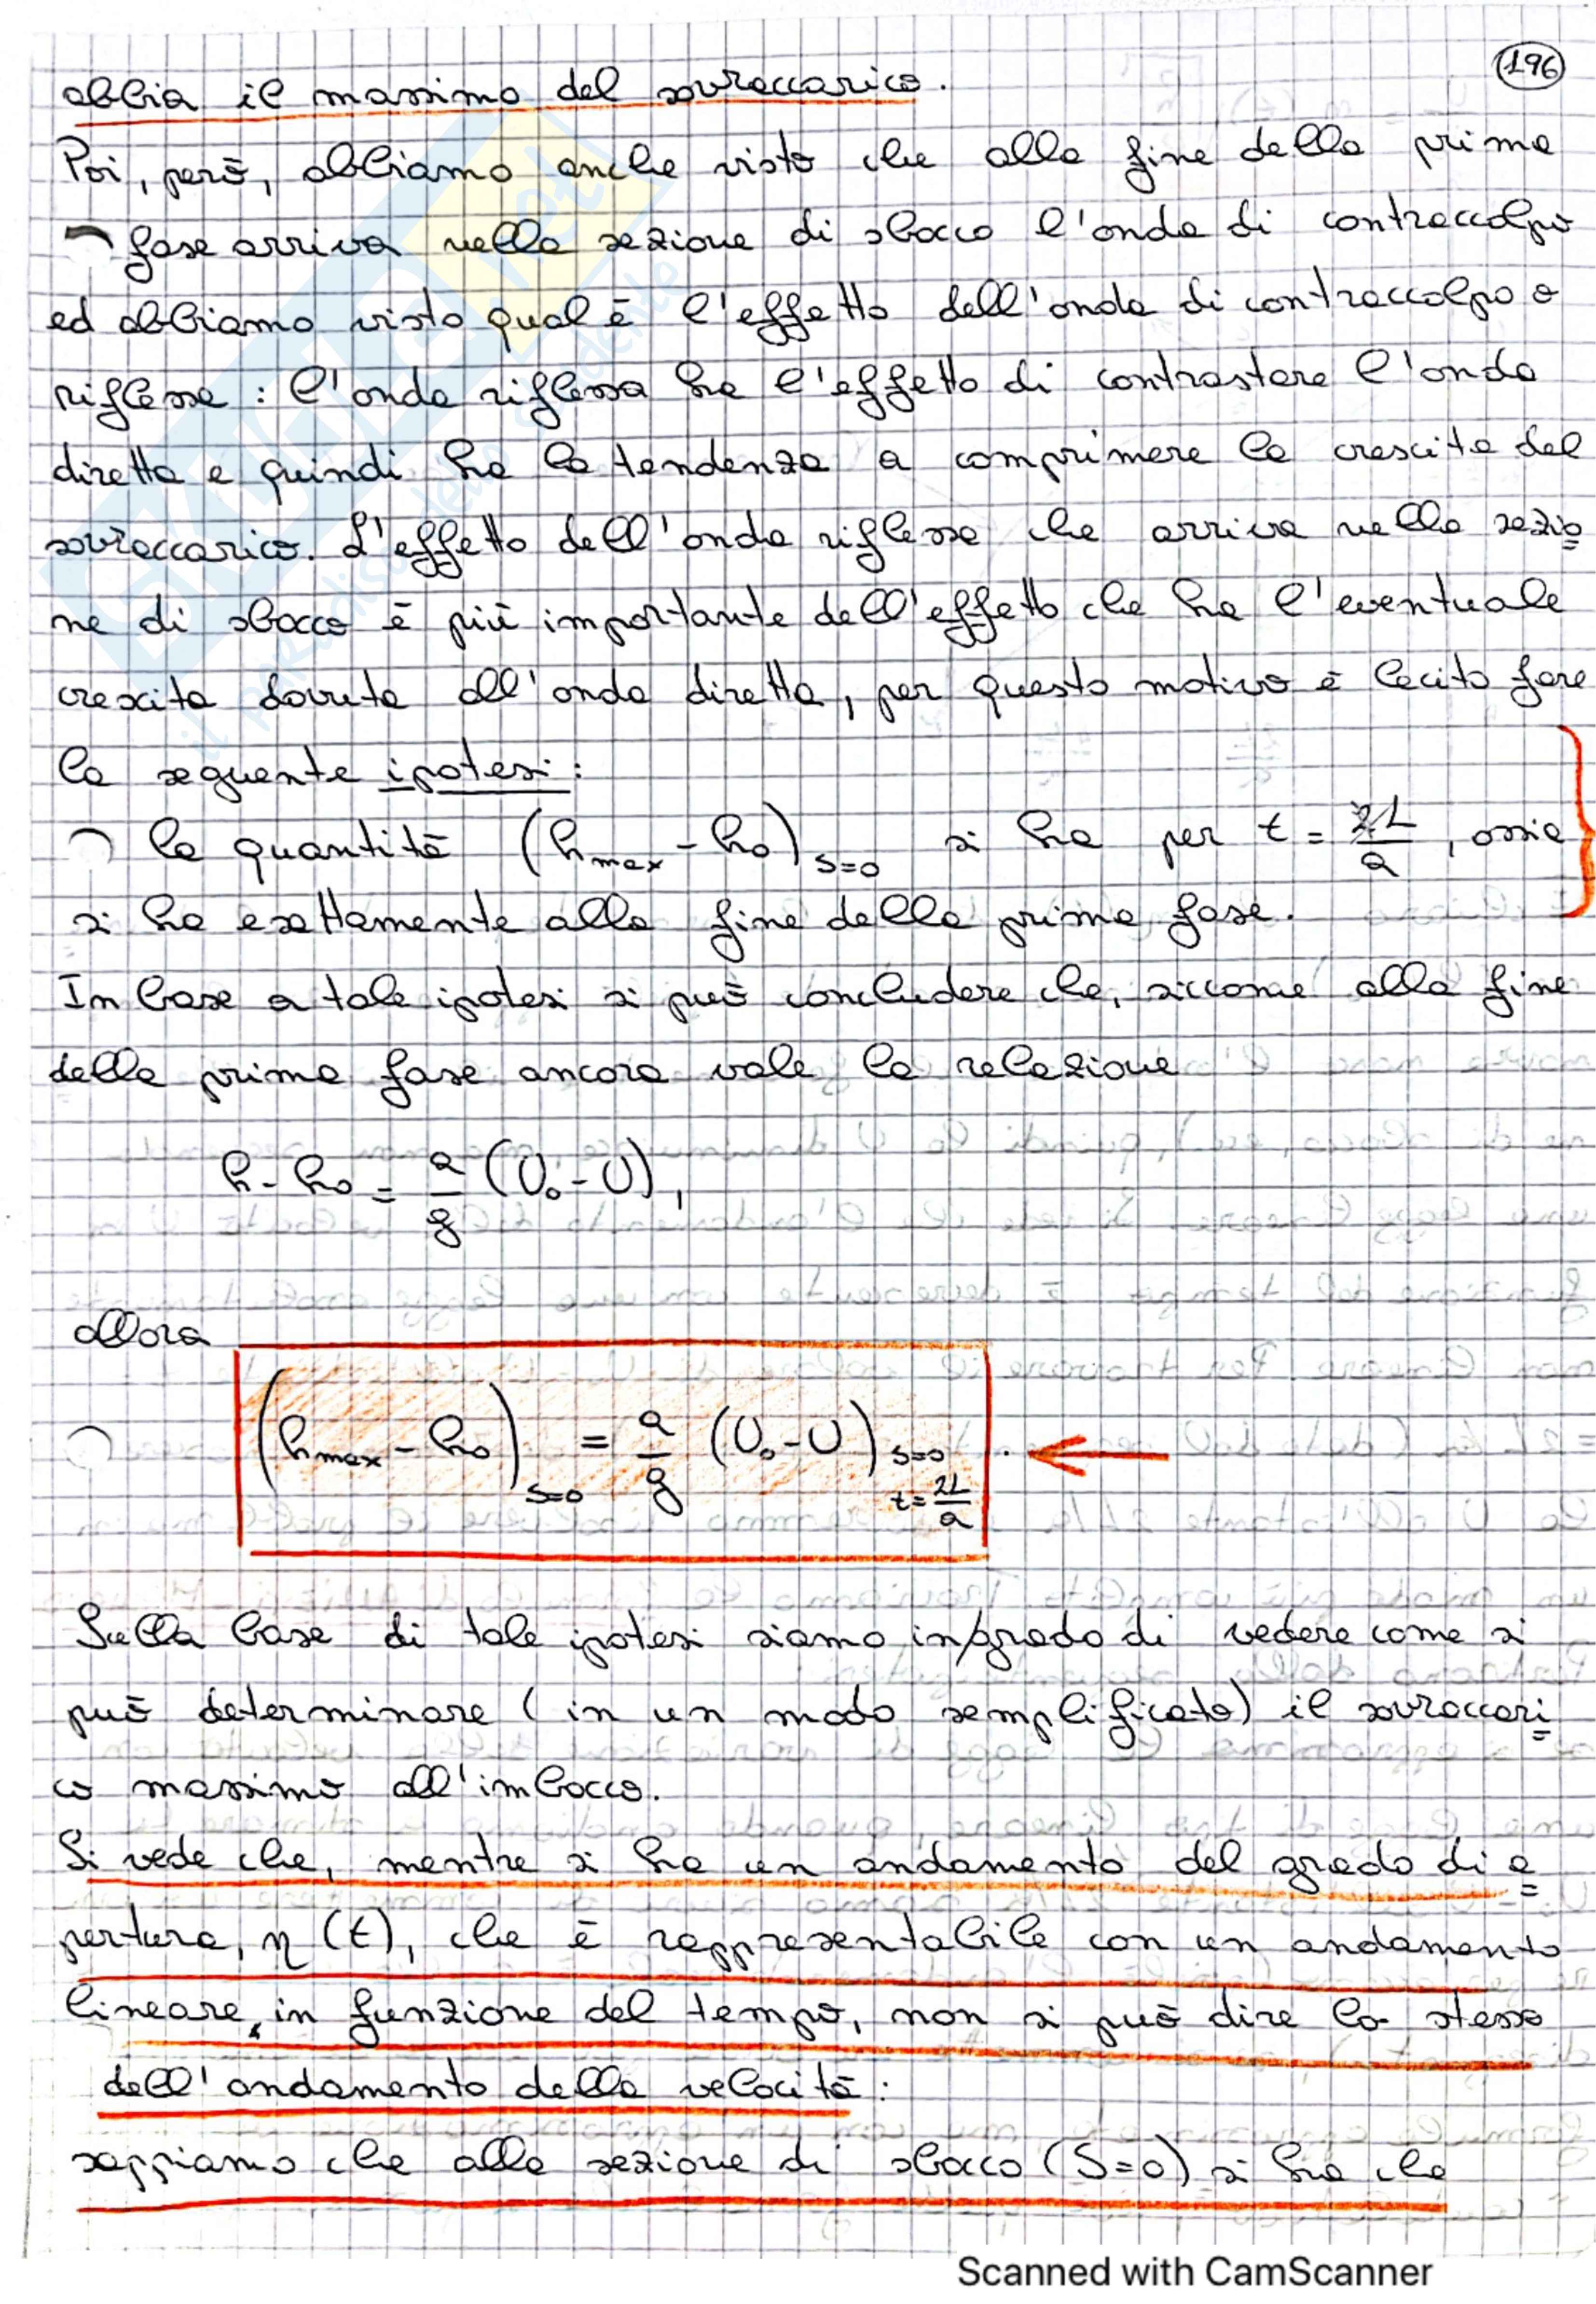 196
abbia il massimo del sovraccarico.
Poi, però, abbiamo anche visto che alla fine della prima
fase arriva nella sezione di sbocco l'onda di contraccolpo
ed abbiamo visto qual è l'effetto dell'onda di contraccolpo o
riflessa : l'onda riflessa ha l'effetto di contrastare l'onda
diretta e quindi ha la tendenza a comprimere la crescita del
sovraccarico. L'effetto dell'onda riflessa che arriva nella sezio
ne di sbocco è più importante dell'effetto che ha l'eventuale
crescita dovuta all'onda diretta, per questo motivo è lecito fare
la seguente ipotesi:
la quantità (hmax - h₀)s=0 si ha per t = 2L/a, ossia
si ha esattamente alla fine della prima fase.
In base a tale ipotesi si può concludere che, siccome alla fine
della prima fase ancora vale la relazione
h - h₀ = a/g (U₀ - U),
allora
(hmax - h₀)s=0 = a/g (U₀ - U)s=0 t=2L/a .
Sulla base di tale ipotesi siamo in grado di vedere come si
può determinare (in un modo semplificato) il sovraccari
co massimo all'imbocco.
Si vede che, mentre si ha un andamento del grado di a
pertura, η(t), che è rappresentabile con un andamento
lineare, in funzione del tempo, non si può dire lo stesso
dell'andamento della velocità:
sappiamo che alla sezione di sbocco (S=0) si ha che
Scanned with CamScanner